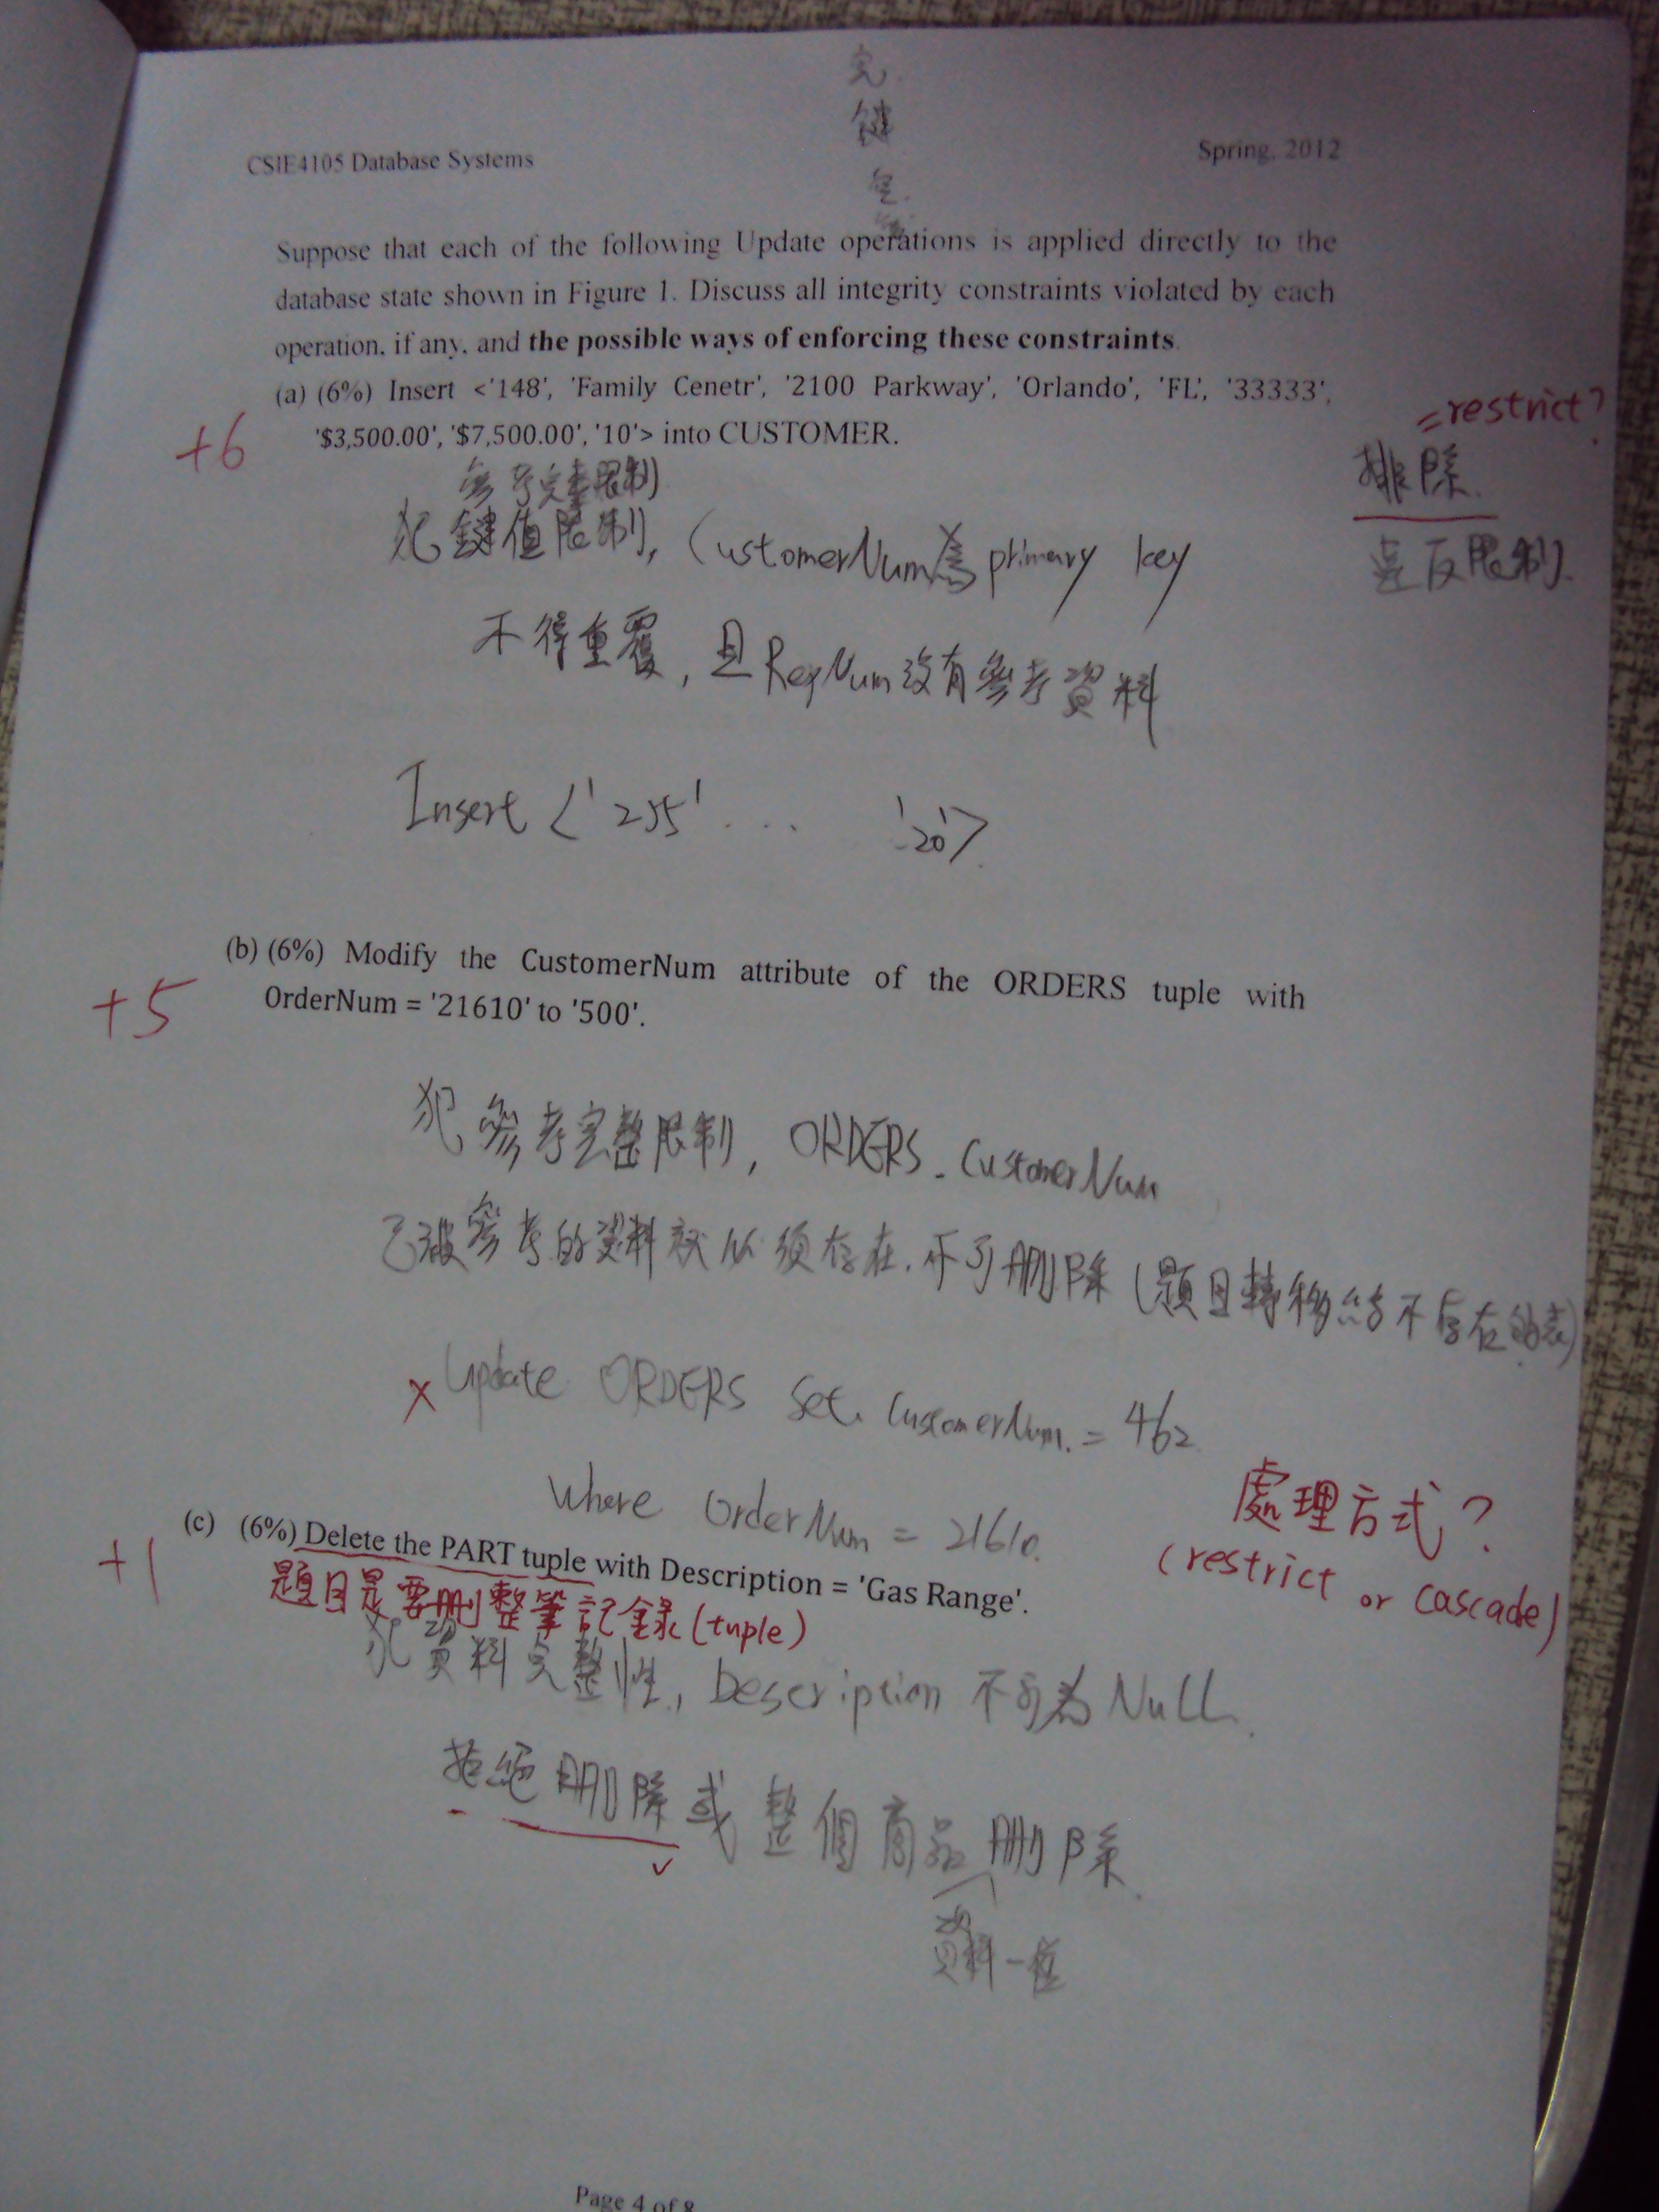 完
鍵
CSIE4105 Database Systems
Spring, 2012
Suppose that each of the following Update operations is applied directly to the
database state shown in Figure 1. Discuss all integrity constraints violated by each
operation, if any, and the possible ways of enforcing these constraints.
(a) (6%) Insert <'148', 'Family Cenetr', '2100 Parkway', 'Orlando', 'FL', '33333',
'$3,500.00', '$7,500.00', '10'> into CUSTOMER.
+6
=restrict?
排除
違反限制
參考完整限制
犯鍵值限制, CustomerNum為primary key
不得重覆, 且RepNum沒有參考資料
Insert <'255' ... '20'>
(b) (6%) Modify the CustomerNum attribute of the ORDERS tuple with
OrderNum = '21610' to '500'.
+5
犯參考完整限制, ORDERS.CustomerNum
已被參考的資料就必須存在.不可刪除(題目轉移給不存在的表)
X Update ORDERS Set CustomerNum. = 462
Where OrderNum = 21610.
處理方式?
(restrict or cascade)
(c) (6%) Delete the PART tuple with Description = 'Gas Range'.
+1
題目是要刪整筆記錄(tuple)
犯資料完整性, Description 不可為 Null.
拒絕刪除或整個商品刪除.
資料一樣
Page 4 of 8